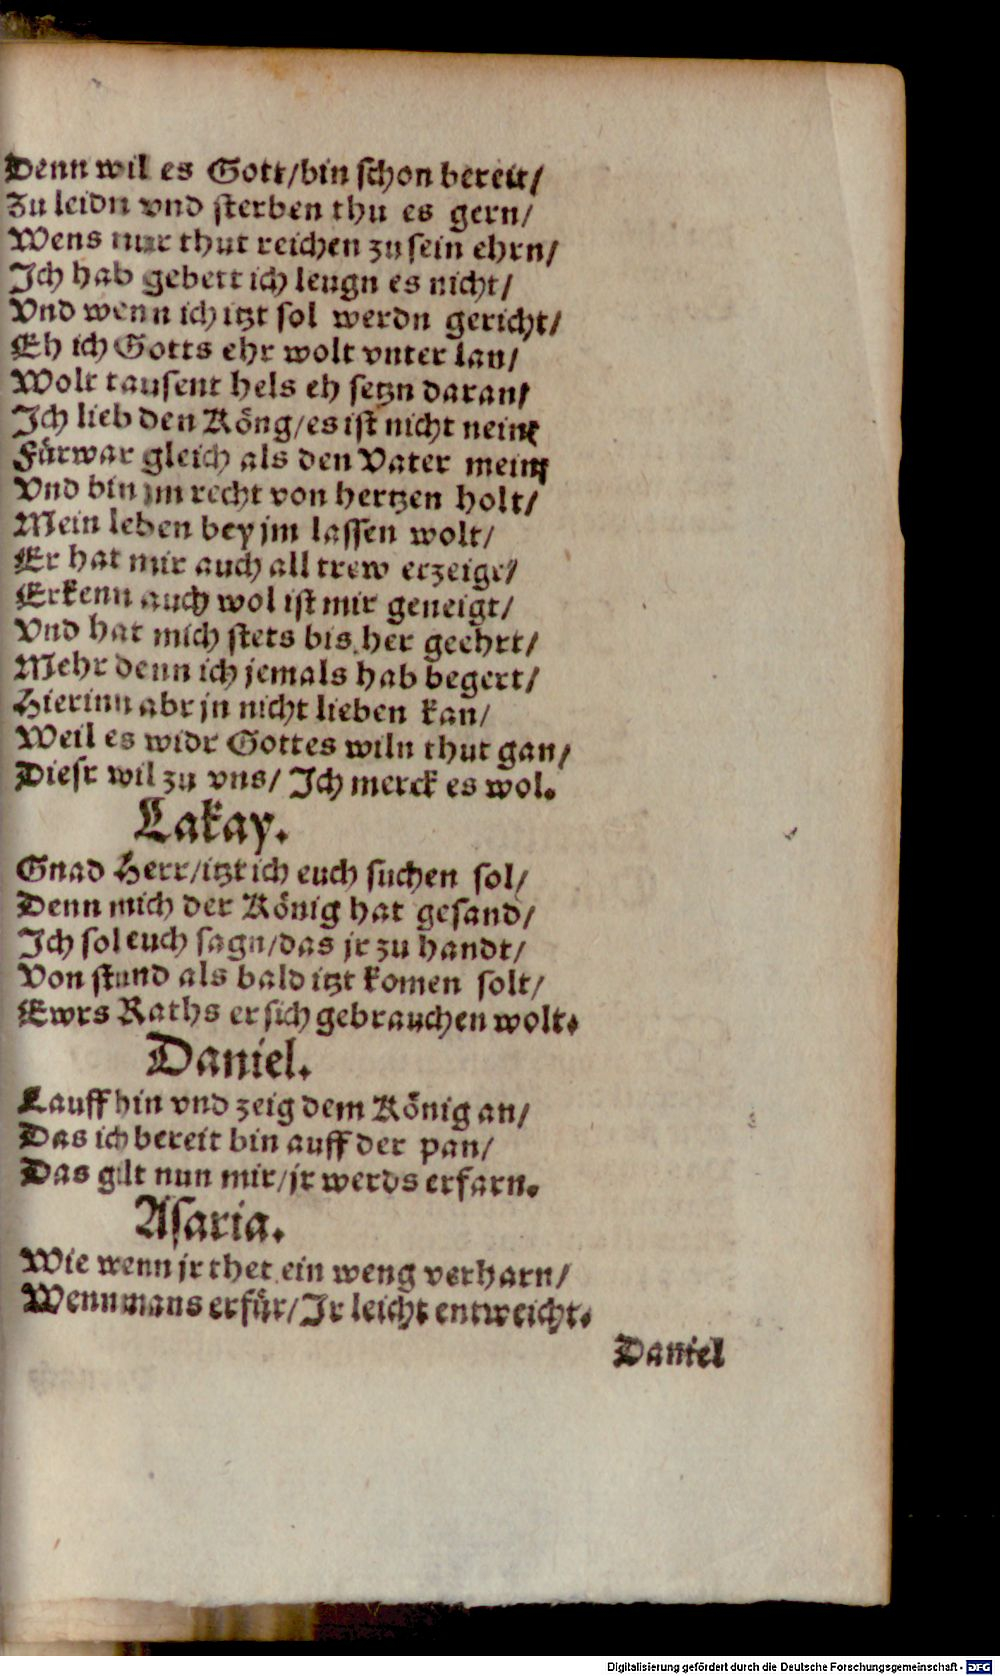 Denn wil es Gott/bin schon bereit/
Zu leidn vnd sterben thu es gern/
Wens nur thut reichen zu sein ehrn/
Ich hab gebett ich leugn es nicht/
Vnd wenn ich itzt sol werdn gericht/
Eh ich Gotts ehr wolt vnter lan/
Wolt tausent hels eh setzn daran/
Ich lieb den Köng/es ist nicht nein/
Fürwar gleich als den Vater mein/
Vnd bin jm recht von hertzen holt/
Mein leben bey jm lassen wolt/
Er hat mir auch all trew erzeigt/
Erkenn auch wol ist mir geneigt/
Vnd hat mich stets bis her geehrt/
Mehr denn ich jemals hab begert/
Hierinn abr jn nicht lieben kan/
Weil es widr Gottes wiln thut gan/
Diesr wil zu vns/ Ich merck es wol.
Lakay.
Gnad Herr/itzt ich euch suchen sol/
Denn mich der König hat gesand/
Ich sol euch sagn/das jr zu handt/
Von stund als bald itzt komen solt/
Ewrs Raths er sich gebrauchen wolt.
Daniel.
Lauff hin vnd zeig dem König an/
Das ich bereit bin auff der pan/
Das gilt nun mir/jr werds erfarn.
Asaria.
Wie wenn jr thet ein weng verharn/
Wenn mans erfür/Ir leicht entweicht.
Daniel
Digitalisierung gefördert durch die Deutsche Forschungsgemeinschaft - DFG